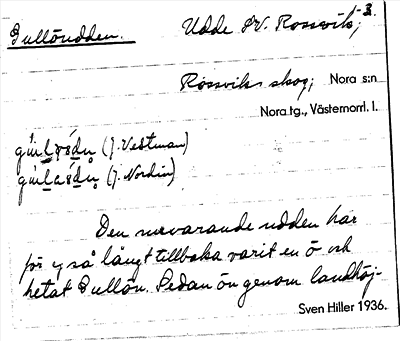 Gullöudden. Udde SV. Rossvik; 3.
Rossviks skog; Nora s:n
Nora tg., Västernorrl. l.
(J. Vestman)
(J. Nordin)
Den nuvarande udden har
för ej så långt tillbaka varit en ö och
hetat Gullön. Sedan ön genom landhöj-
Sven Hiller 1936.